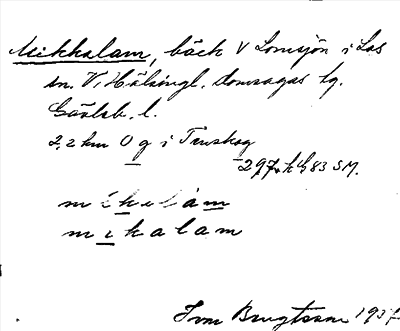 Mikkalam, bäck V Lomsjön i Los
sn. V. Hälsingl. domsagas tg.
Gävleb. l.
2,2 km O g i Tenskog
297. h G 83 SM.
míkalàm
mikalam
Ivar Bengtsson 1937